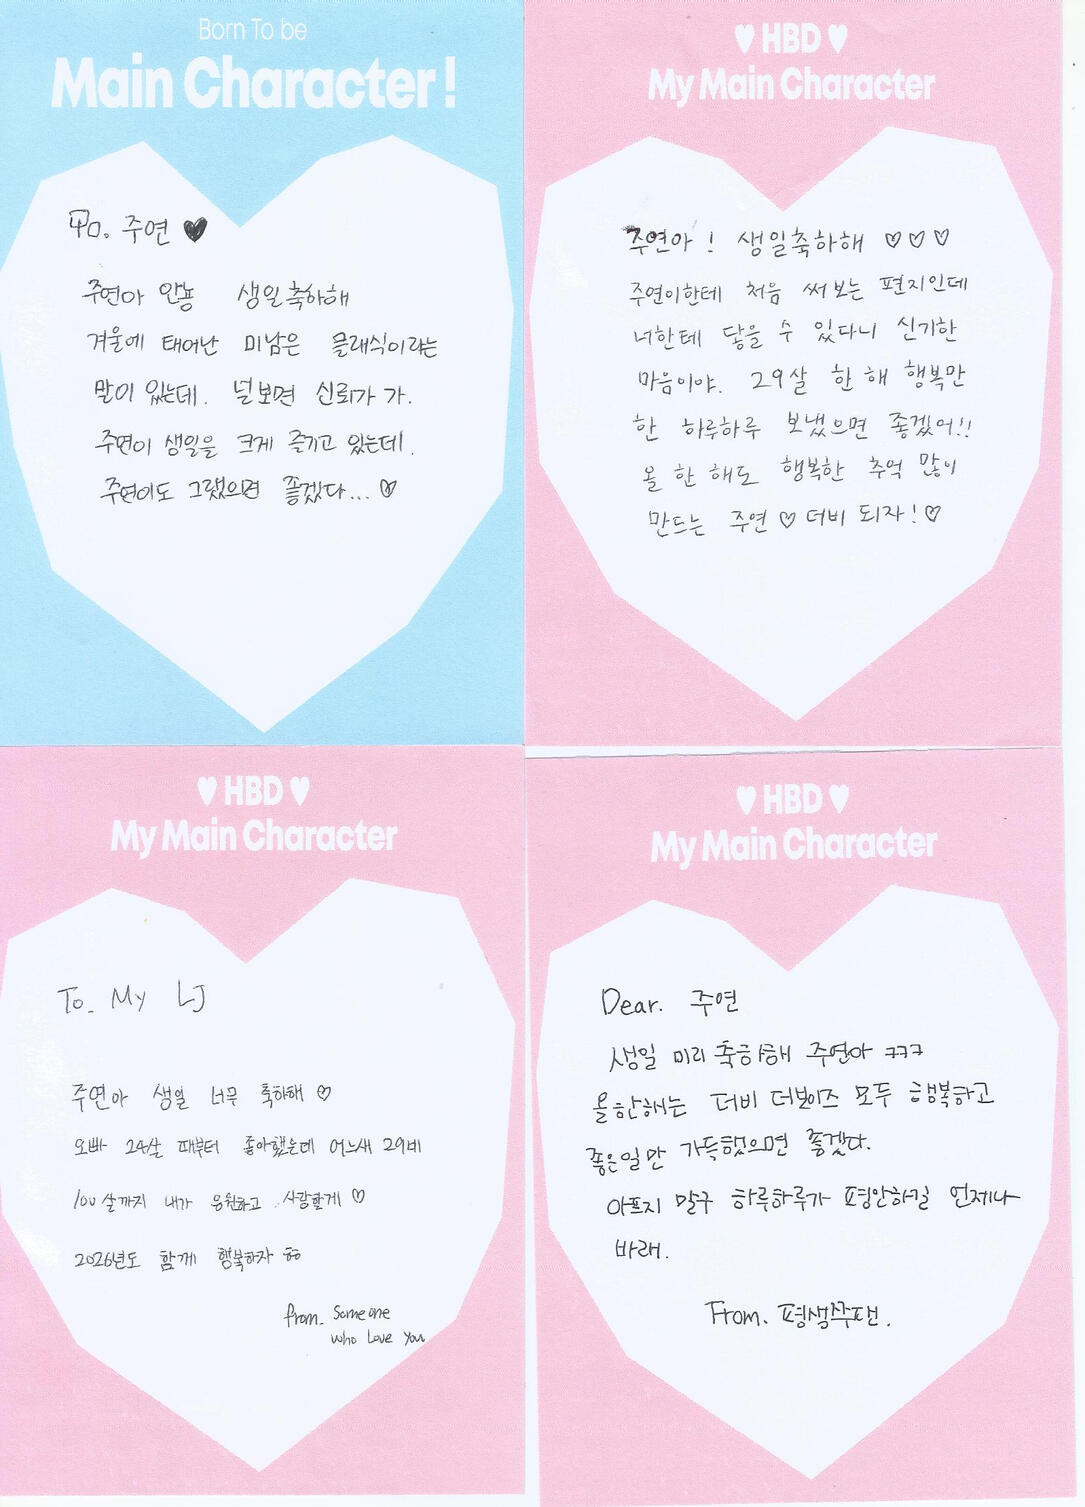 Born To be
Main Character!
To. 주연 ♥
주연아 안뇽 생일축하해
겨울에 태어난 미남은 클래식이라는
말이 있는데. 널보면 신뢰가 가.
주연이 생일을 크게 즐기고 있는데.
주연이도 그랬으면 좋겠다... ♡
♥ HBD ♥
My Main Character
주연아! 생일축하해 ♡♡♡
주연이한테 처음 써보는 편지인데
너한테 닿을 수 있다니 신기한
마음이야. 29살 한 해 행복만
한 하루하루 보냈으면 좋겠어!!
올 한 해도 행복한 추억 많이
만드는 주연♡더비 되자!♡
♥ HBD ♥
My Main Character
To. My LJ
주연아 생일 너무 축하해 ♡
오빠 24살 때부터 좋아했은데 어느새 29네
100살까지 내가 응원하고 사랑할게 ♡
2026년도 함께 행복하자 ㅎㅎ
from. Someone
who Love You
♥ HBD ♥
My Main Character
Dear. 주연
생일 미리 축하해 주연아 ㅋㅋㅋ
올한해는 더비 더보이즈 모두 행복하고
좋은일만 가득했으면 좋겠다.
아프지 말구 하루하루가 평안하길 언제나
바래.
From. 평생쭈팬.